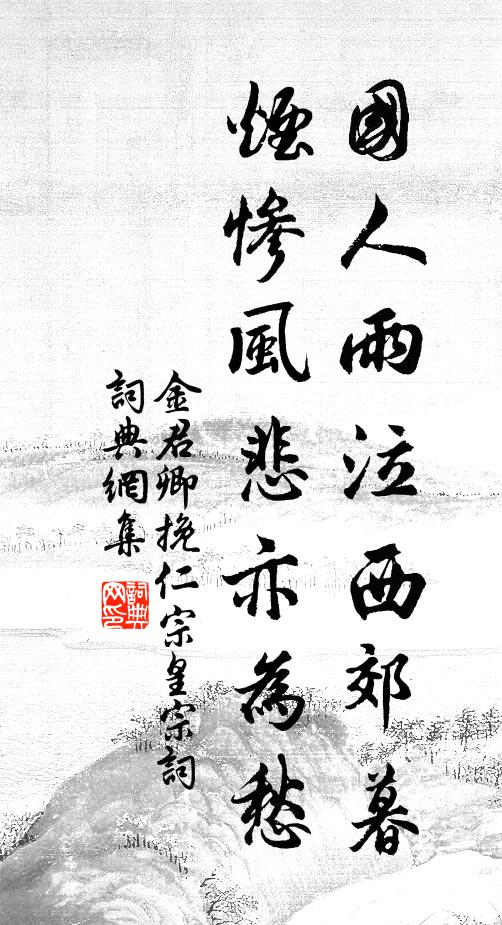 國人雨泣西郊暮
煙慘風悲亦為愁
金君卿挽仁宗皇宗詞
詞典網集
詞典网印